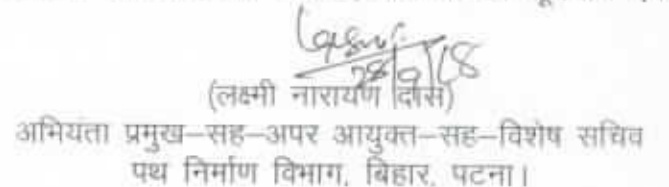 28/9/18
(लक्ष्मी नारायण दास)
अभियंता प्रमुख–सह–अपर आयुक्त–सह–विशेष सचिव
पथ निर्माण विभाग, बिहार, पटना।